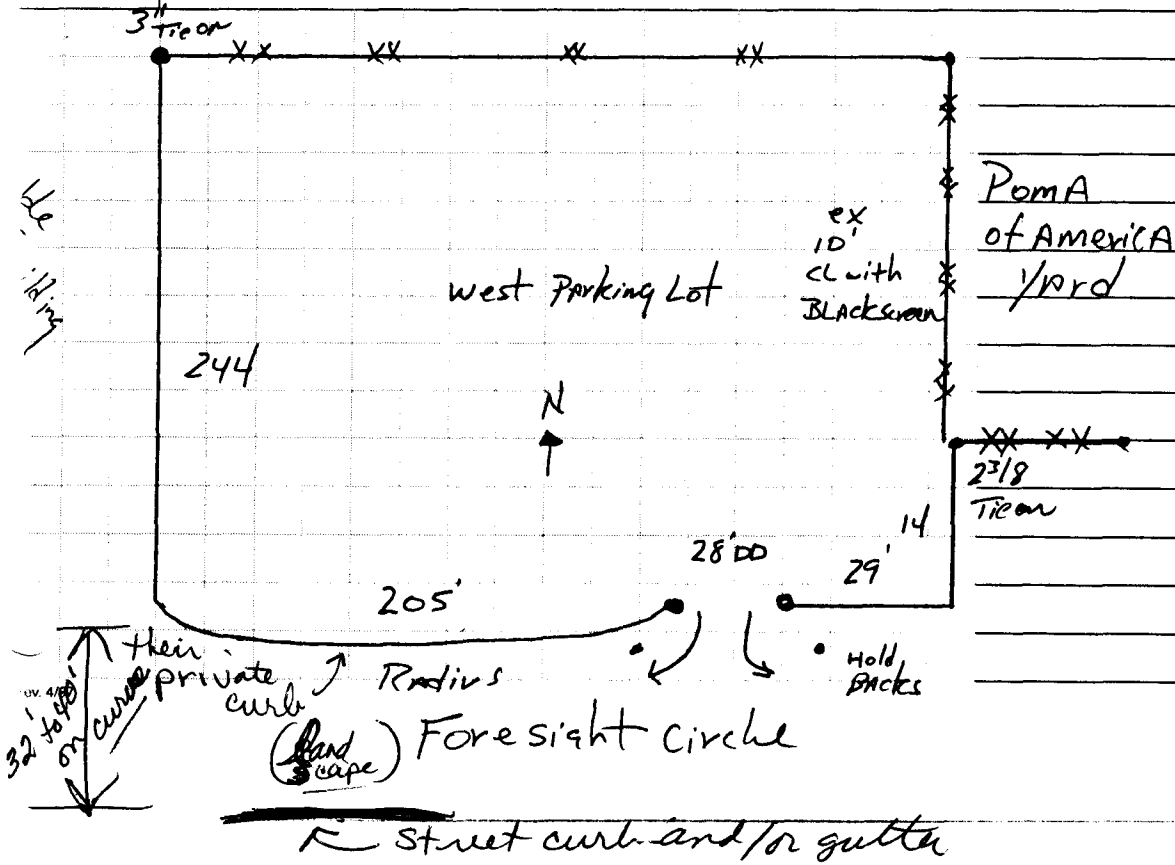 3" Tie on
XX XX XX XX
PomA
of AmericA
YArd
ex
10'
CL with
BLAckscreen
west PArking Lot
244
N
XX XX
2 3/8
Tie on
14
28' DD
29'
205'
their
private
curb
Radius
Hold
BAcks
32' to 40'
on curve
(Land
scape)
Foresight Circle
Street curb and/or gutter